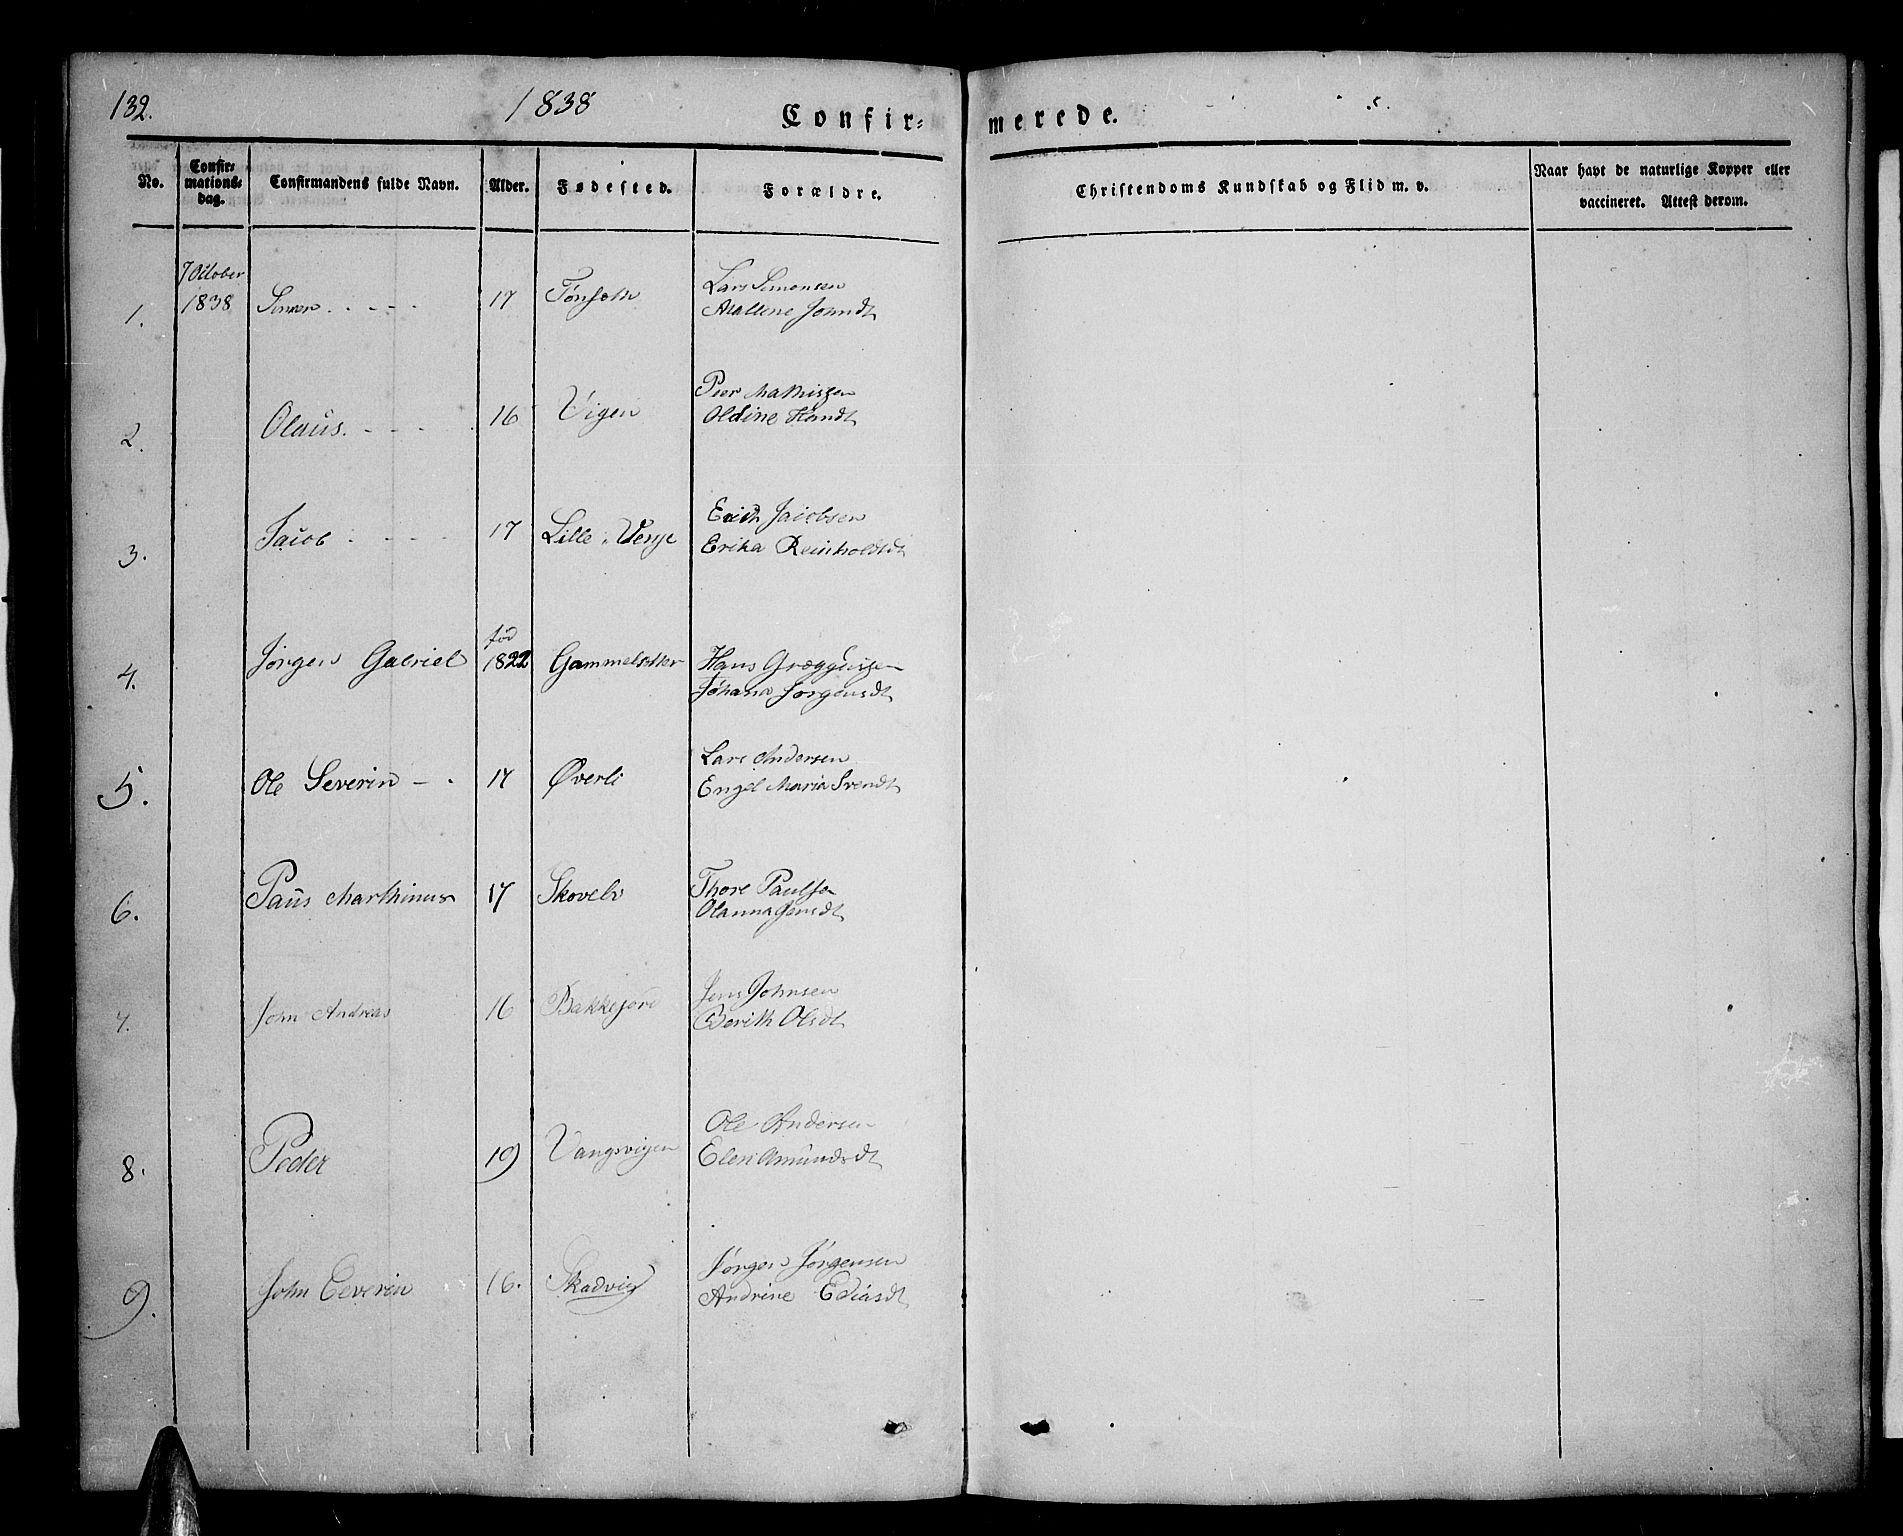 132.
1838
Confir=
merede.
No.
Confir=
mations=
dag.
Confirmandens fulde Navn.
Alder.
Fødested.
Forældre.
Christendoms Kundskab og Flid m. v.
Naar havt de naturlige Kopper eller
vaccineret. Attest derom.
7 October
1838
1.
Simon
17
Lars Simonsen
Mallene
2.
Olaus.
16
Vigen
Peer Mathiszen
Oldine Handt
3.
Jacob
17
Lille
Erich Jacobsen
Erika Reinholdtdt
4.
Jørgen Gabriel
fød
1822
Gammelsetter
Hans
Johana Jørgensdt
5.
Ole Severin
17
Øverli
Lars Andersen
Engel Maria Svendt
6.
Paus Marthinus
17
Skovelv
Thore Paulsen
Olanna Jensdt
7.
John Andreas
16
Bakkejord
Jens Johnsen
Berith Olsdt
8.
Peder
19
Vangsvigen
Ole Andersen
Elen Amundsdt
9.
John Ceverin
16.
Skadvig
Jørgen Jørgensen
Andrine Ediasdt